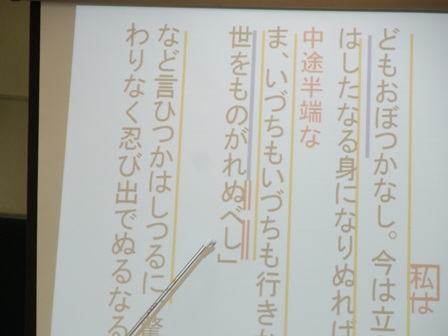 私は
どもおぼつかなし。今は立
はしたなる身になりぬれば
中途半端な
ま、いづちもいづちも行き
世をものがれぬべし」
など言ひつかはしつるに
わりなく忍び出でぬるなる